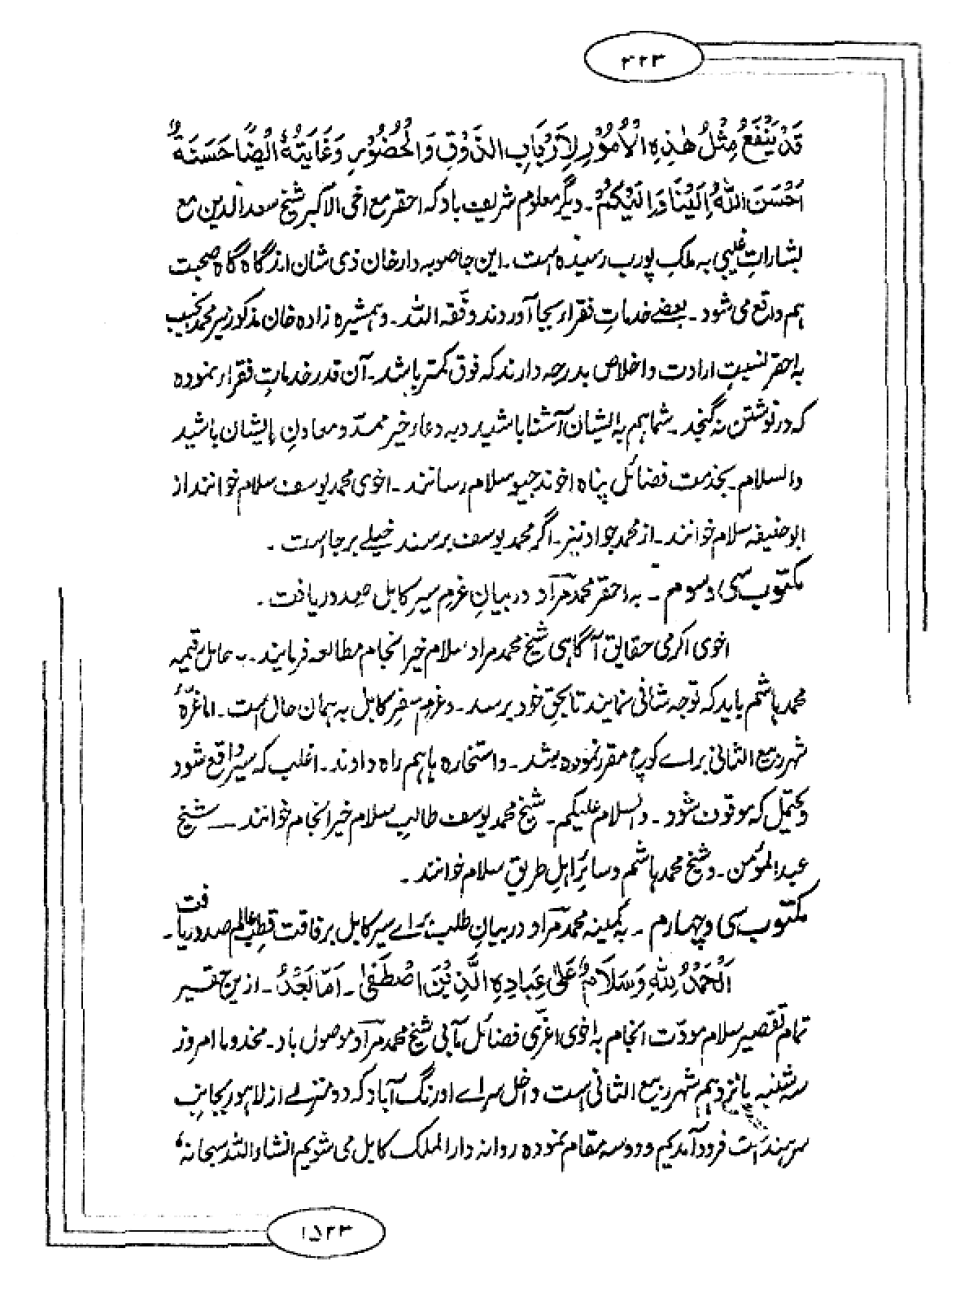 ۴۲۳
قَدْ یَنْفَعُ مِثْلُ هٰذِهِ الْاُمُوْرِ لِاَرْبَابِ الذَّوْقِ وَالْحُضُوْرِ وَغَایَتُهٗ اَیْضًا حَسَنَةٌ
اَحْسَنَ اللّٰهُ اِلَیْنَا وَاِلَیْکُمْ۔ دیگر معلوم شریف باد که احقر مع اخی الاکبر شیخ سعدالدین مع
بشاراتِ غیبی به ملک پورب رسیده است۔ این جا صوبه دار خان ذی شان ازگاه گاه صحبت
هم واقع می شود۔ بعضے خدماتِ فقراء بجا آوردند وفّقه اللّٰه۔ وهمشیره زاده خان مذکور میر محمد نجیب
به احقر نسبتِ ارادت و اخلاص بدرجه دارند که فوق کمتر باشد۔ آن قدر خدماتِ فقراء نموده
که در نوشتن نه گنجد۔ شما هم به ایشان آشنا باشید و به دعاء خیر ممدّ و معاونِ ایشان باشید
والسلام۔ بخدمت فضائل پناه اخوند جیو سلام رسانند۔ اخوی محمد یوسف سلام خوانند از
ابوحنیفه سلام خوانند۔ از محمد جواد نیز۔ اگر محمد یوسف برسند خیلے برجا است۔
مکتوب سی و سوم۔ به احقر محمد مراد در بیانِ عزم سیر کابل صدور یافت۔
اخوی اکرمی حقایق آگاهی شیخ محمد مراد سلام خیر انجام مطالعه فرمایند۔ به حامل رقیمه
محمد هاشم باید که توجه شانی نمایند تا بحق خود برسد۔ وعزم سفر کابل به همان حال است۔ اما غرّهٔ
شهر ربیع الثانی براے کوچ مقرر نموده شد۔ و استخاره ها هم راه دادند۔ اغلب که سیر واقع شود
ویحتمل که موقوف شود۔ والسلام علیکم۔ شیخ محمد یوسف طالب سلام خیر انجام خوانند — شیخ
عبدالمؤمن۔ وشیخ محمد هاشم وسائر اهل طریق سلام خوانند۔
مکتوب سی و چهارم۔ به کمینه محمد مراد در بیانِ طلب براے سیر کابل برفاقت قطب عالم صدور یافت۔
اَلْحَمْدُ لِلّٰهِ وَسَلَامٌ عَلٰی عِبَادِهِ الَّذِیْنَ اصْطَفٰی۔ اَمَّا بَعْدُ۔ ازین حقیر
تمام تقصیر سلام مودّت انجام به اخوی اعزّی فضائل مآبی شیخ محمد مراد موصول باد۔ مخدوما امروز
سه شنبه پانزدهم شهر ربیع الثانی است داخل سراے اورنگ آباد که دو منزلے از لاهور بجانبِ
سرهند است فرود آمدیم و دو سه مقام نموده روانه دارالملک کابل می شویم انشاء اللّٰه سبحانه'
۱۵۲۳